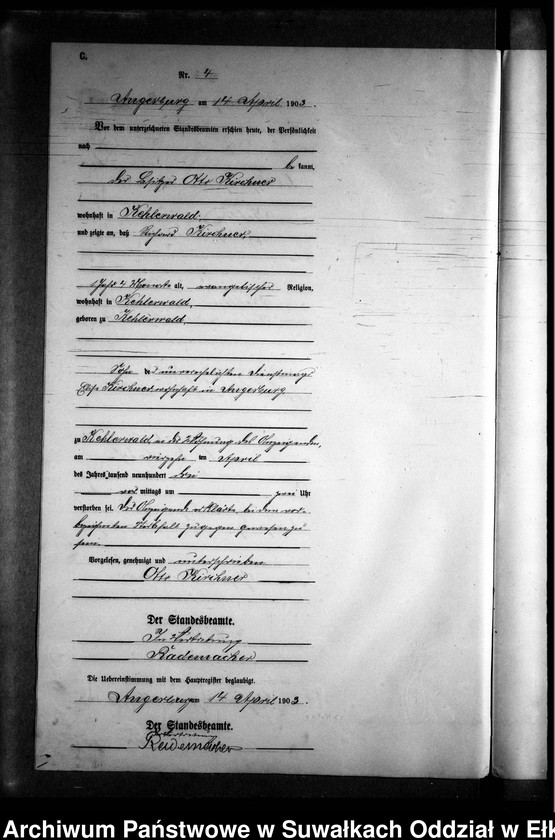 C.
Nr. 4
Angerburg am 14 April 1903.
Vor dem unterzeichneten Standesbeamten erschien heute, der Persönlichkeit
nach
be kannt,
der Besitzer Otto Kirchner
wohnhaft in Kehlerwald,
und zeigte an, daß Kirchner,
Jahr 4 Monate alt, evangelischer Religion,
wohnhaft in Kehlerwald,
geboren zu Kehlerwald,
Sohn der unverehelichten Dienstmagd
Kirchner, wohnhaft in Angerburg
zu Kehlerwald in der Wohnung des Anzeigenden,
am ten April
des Jahres tausend neunhundert drei
vor mittags um zwei Uhr
verstorben sei. Der Anzeigende erklärte bei dem vor-
bezeichneten Sterbefall zugegen gewesen zu
sein.
Vorgelesen, genehmigt und unterschrieben
Otto Kirchner
Der Standesbeamte.
In Vertretung
Rademacher
Die Uebereinstimmung mit dem Hauptregister beglaubigt.
Angerburg am 14 April 1903.
Der Standesbeamte.
In Vertretung
Rademacher
Archiwum Państwowe w Suwałkach Oddział w Ełk